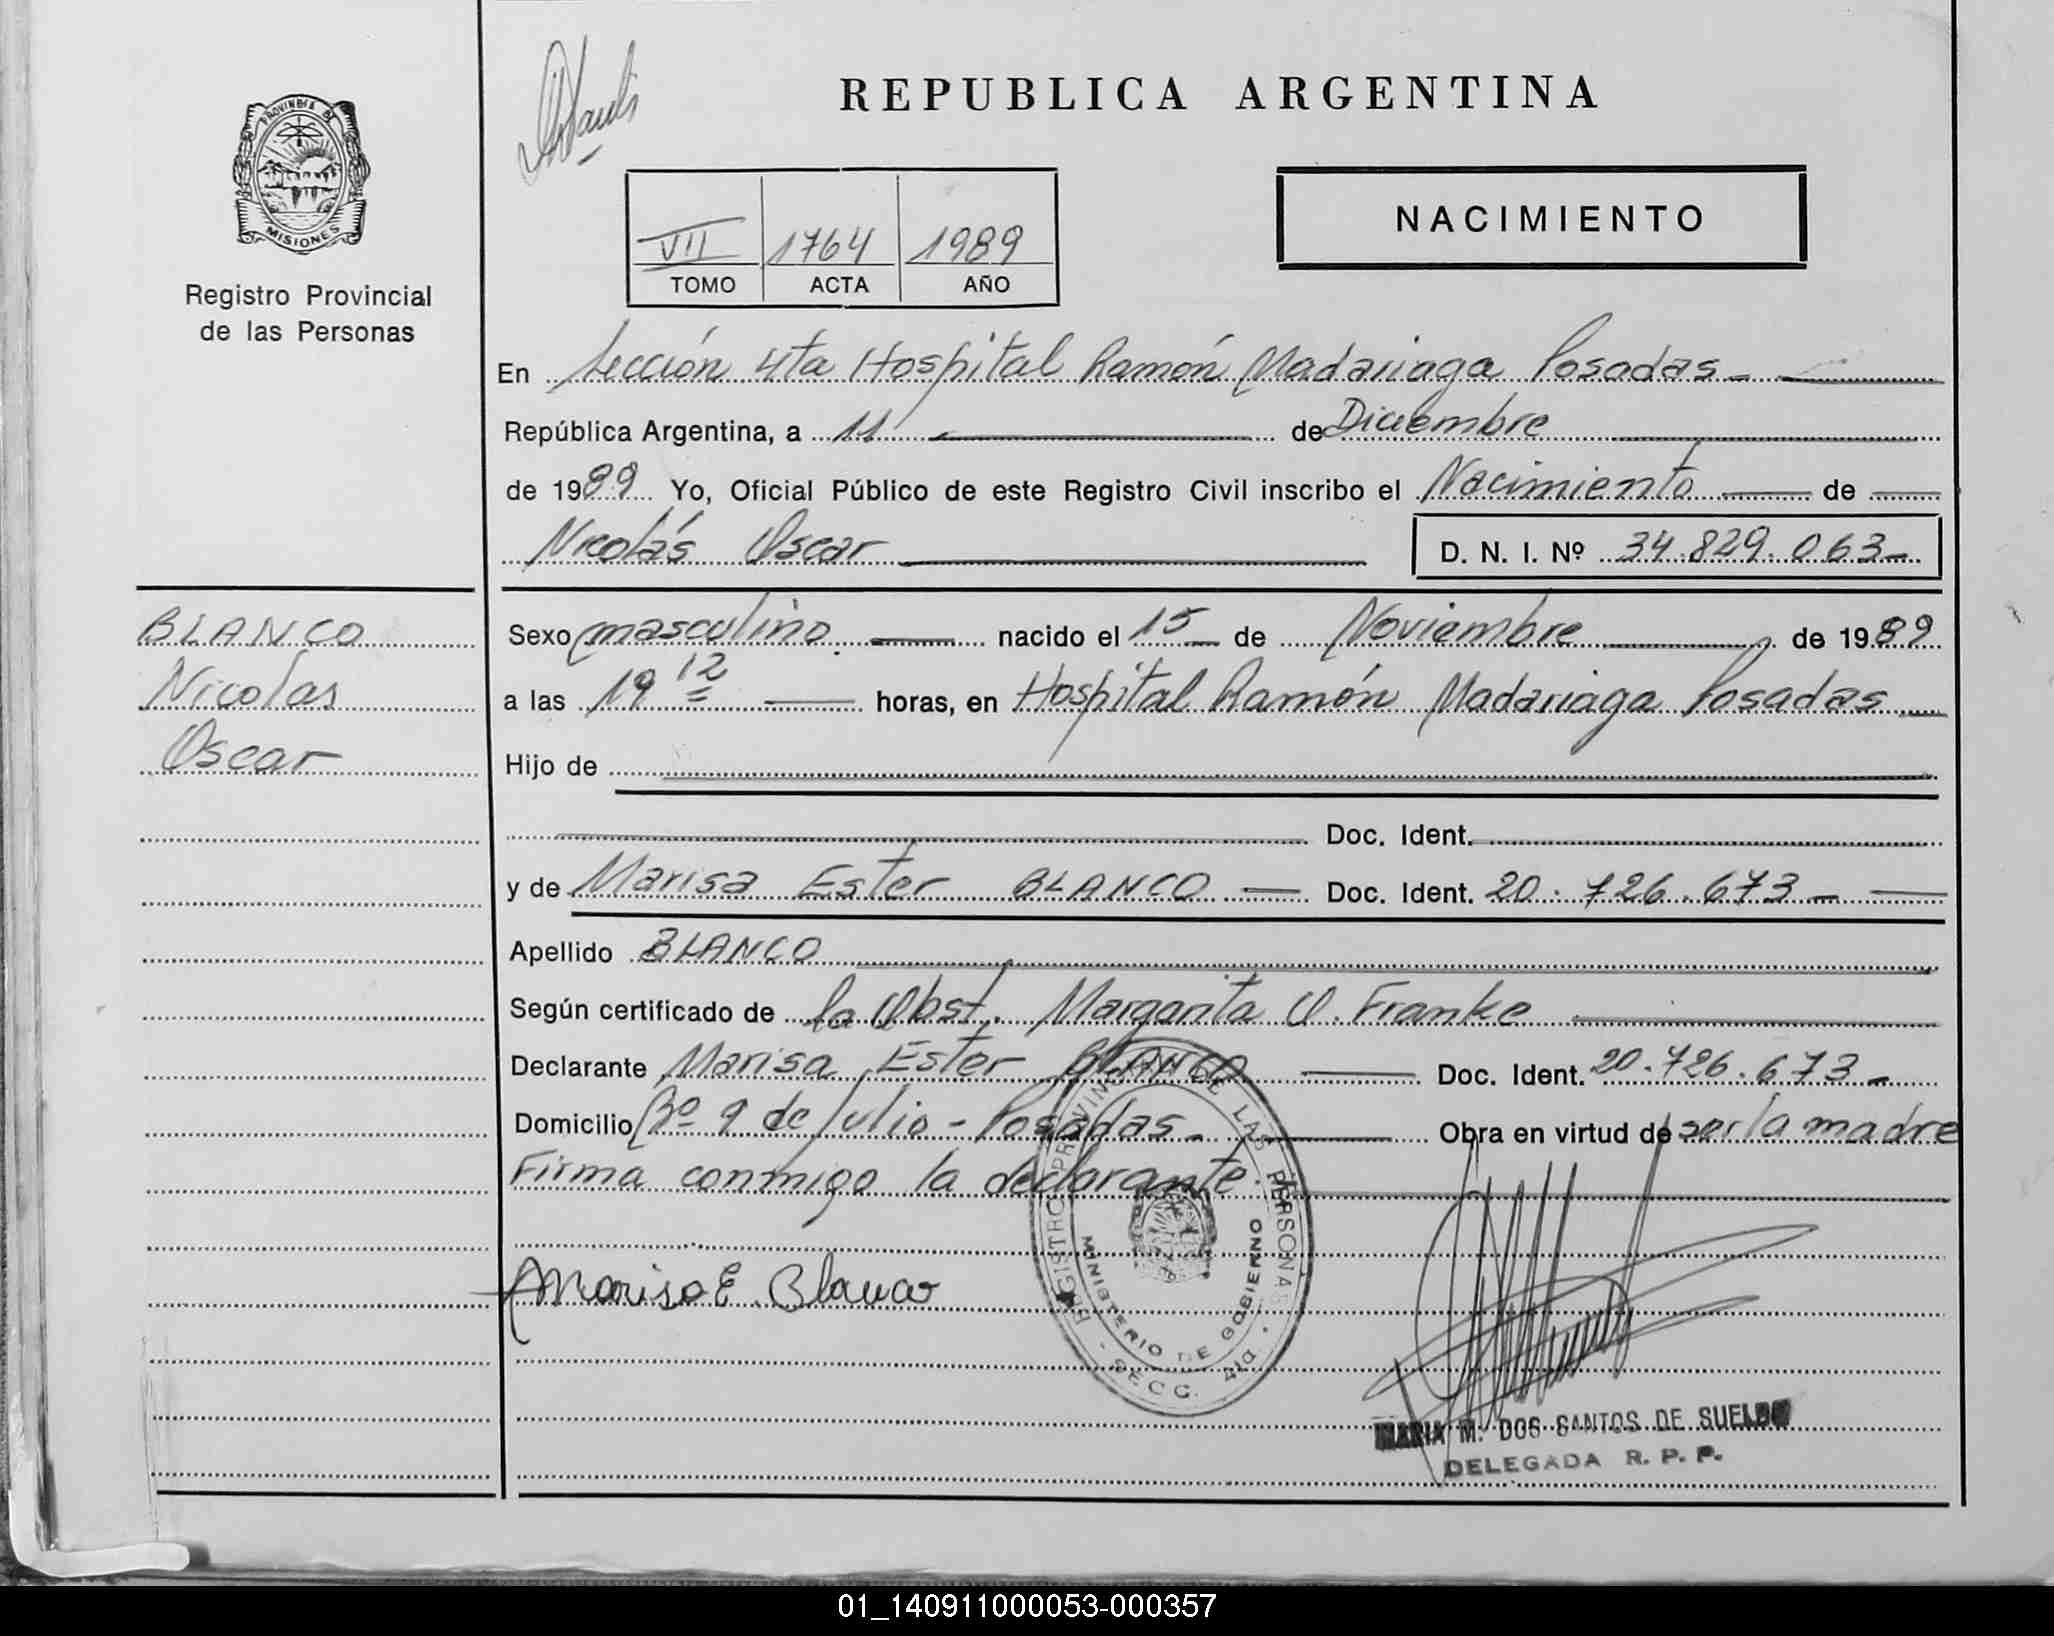 REPUBLICA ARGENTINA
PROVINCIA DE
MISIONES
Registro Provincial
de las Personas
VII 1764 1989
TOMO ACTA AÑO
NACIMIENTO
En Sección 4ta Hospital Ramón Madariaga Posadas
República Argentina, a 11 de Diciembre
de 1989 Yo, Oficial Público de este Registro Civil inscribo el Nacimiento de
Nicolás Oscar D. N. I. Nº 34.829.063
BLANCO
Nicolas
Oscar
Sexo masculino nacido el 15 de Noviembre de 1989
a las 19 12 horas, en Hospital Ramón Madariaga Posadas
Hijo de
Doc. Ident.
y de Marisa Ester BLANCO Doc. Ident. 20.726.673
Apellido BLANCO
Según certificado de la Obst. Margarita O. Franke
Declarante Marisa Ester BLANCO Doc. Ident. 20.726.673
Domicilio Bº 9 de Julio - Posadas Obra en virtud de ser la madre
Firma conmigo la declarante.
Marisa E. Blanco
REGISTRO PROVINCIAL DE LAS PERSONAS
MINISTERIO DE GOBIERNO
SECC. 4ta.
MARIA M. DOS SANTOS DE SUELDO
DELEGADA R. P. P.
01_140911000053-000357